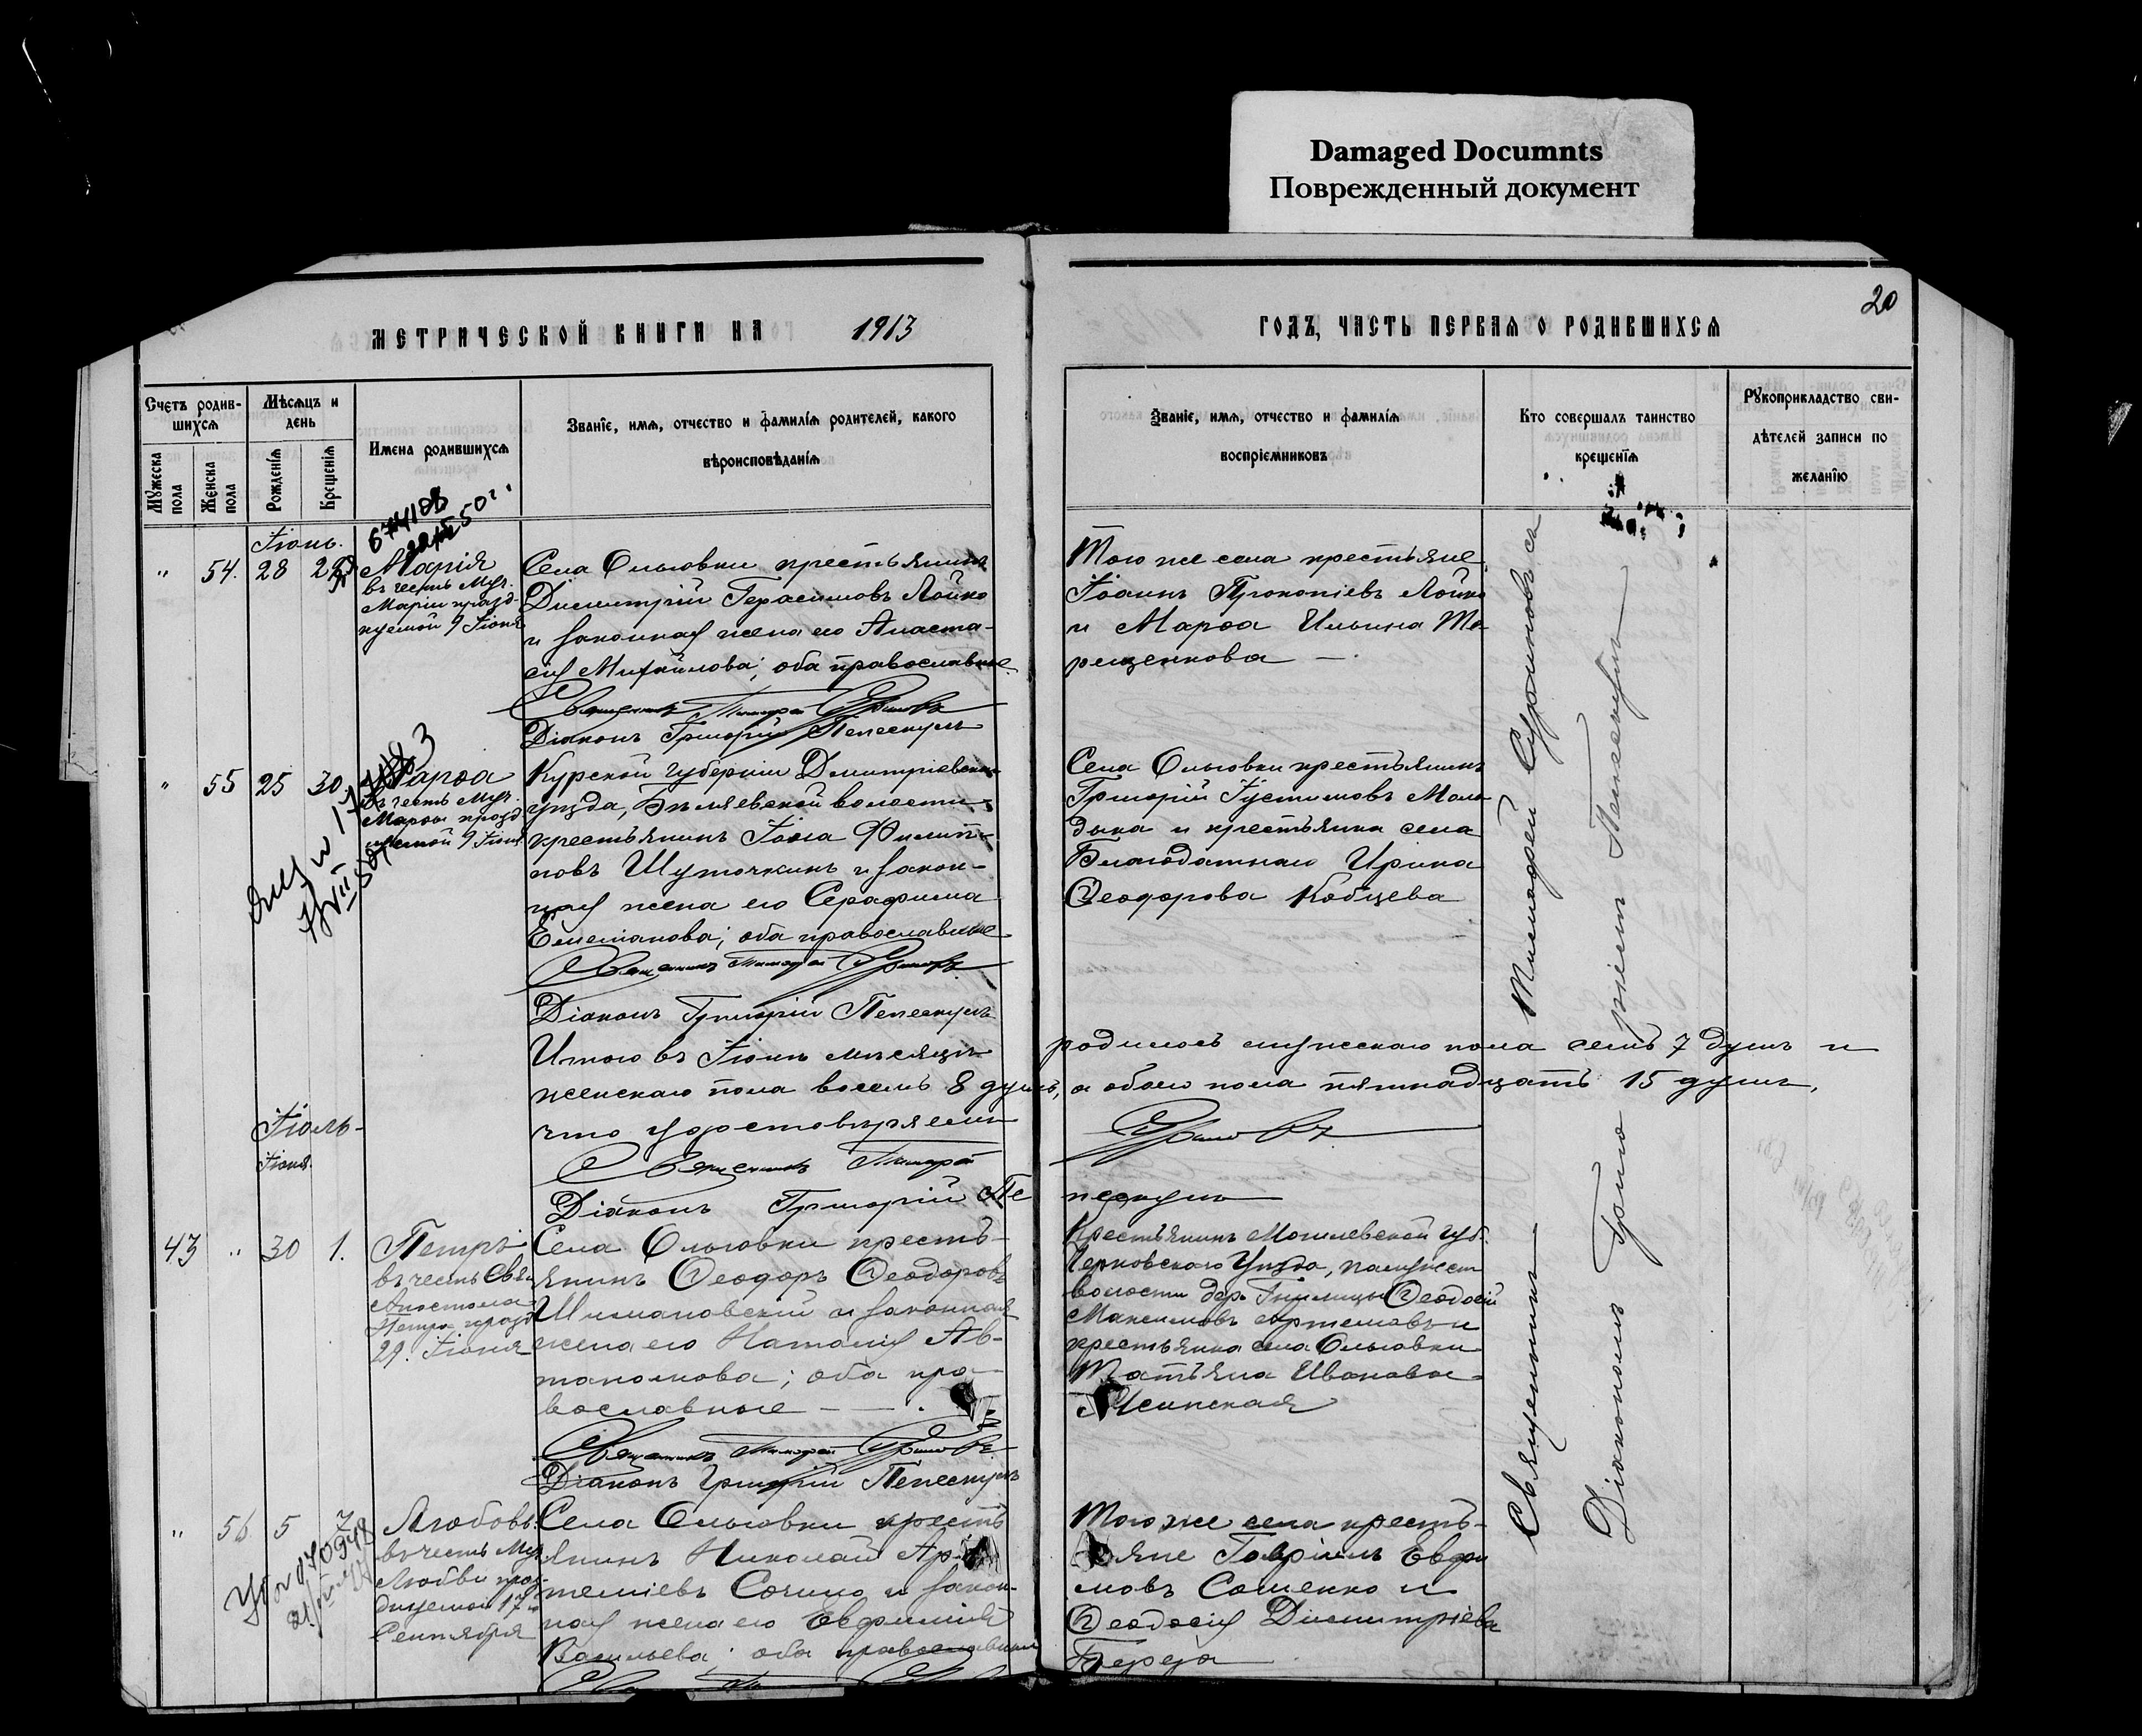 Damaged Documnts
Поврежденный документ
20
МЕТРИЧЕСКОЙ КНИГИ НА 1913
ГОДЪ, ЧАСТЬ ПЕРВАЯ О РОДИВШИХСЯ
Счетъ родив-
шихся
Мужеска пола
Женска пола
Мѣсяцъ и
день
Рожденія
Крещенія
Имена родившихся
Званіе, имя, отчество и фамилія родителей, какого
вѣроисповѣданія
Званіе, имя, отчество и фамилія
воспріемниковъ
Кто совершалъ таинство
крещенія
Рукоприкладство сви-
дѣтелей записи по
желанію
Іюнь.
" 54. 28
Марія
въ честь Муч.
Маріи празд-
нуемой 9 Іюня
Села Ольговки крестьянинъ
Димитрій Герасимовъ Лойко
и законная жена его Анаста-
сія Михайлова; оба православные
Священникъ Тимофей
Діаконъ Григорій Пепескулъ
Того же села крестьяне
Іоаннъ Прокопіевъ Лойко
и Марѳа Ильина Те-
рещенкова —
" 55 25 30
Марѳа
въ честь Муч.
Марѳы празд
нуемой 9 Іюня
Курской губерніи Дмитріевскаго
уѣзда, Бѣляевской волости
крестьянинъ Іона Филип-
повъ Шуточкинъ и закон-
ная жена его Серафима
Емеліанова; оба православные
Священникъ Тимофей
Діаконъ Григорій Пепескулъ
Села Ольговки крестьянинъ
Григорій Іустиновъ Моло
дыка и крестьянка села
Благодатнаго Ирина
Ѳеодорова Кобцева
Итого въ Іюнѣ мѣсяцѣ родилось мужескаго пола семь 7 душъ и
женскаго пола восемь 8 душъ, а обоего пола пятнадцать 15 душъ,
что удостовѣряемъ
Священникъ Тимофей
Діаконъ Григорій Пе
пескулъ
Іюль
Іюня.
43 " 30 1.
Петръ
въ честь Свя.
Апостола
Петра празд
29. Іюня
Села Ольговки кресть-
янинъ Ѳеодоръ Ѳеодоровъ
Шимановскій и законная
жена его Наталія Ав-
тономова; оба пра-
вославные — — .
Священникъ Тимофей
Діаконъ Григорій Пепескулъ
Крестьянинъ Могилевской губ.
уѣзда,
волости дер. Ѳеодосій
Максимовъ и
крестьянка села Ольговки
Татьяна Иванова
" 56 5 7
Любовь
въ честь Муч
Любви праз-
днуемой 17го
Сентября
Села Ольговки кресть
янинъ Николай Ар-
теміевъ и закон-
ная жена его Евфимія
Васильева; оба православные
Того же села кресть-
яне Гавріилъ Евфи
мовъ Сошенко и
Ѳеодосія Димитріева
Береза
Священникъ Тимофей
Діакономъ Григоріемъ Пепескулъ